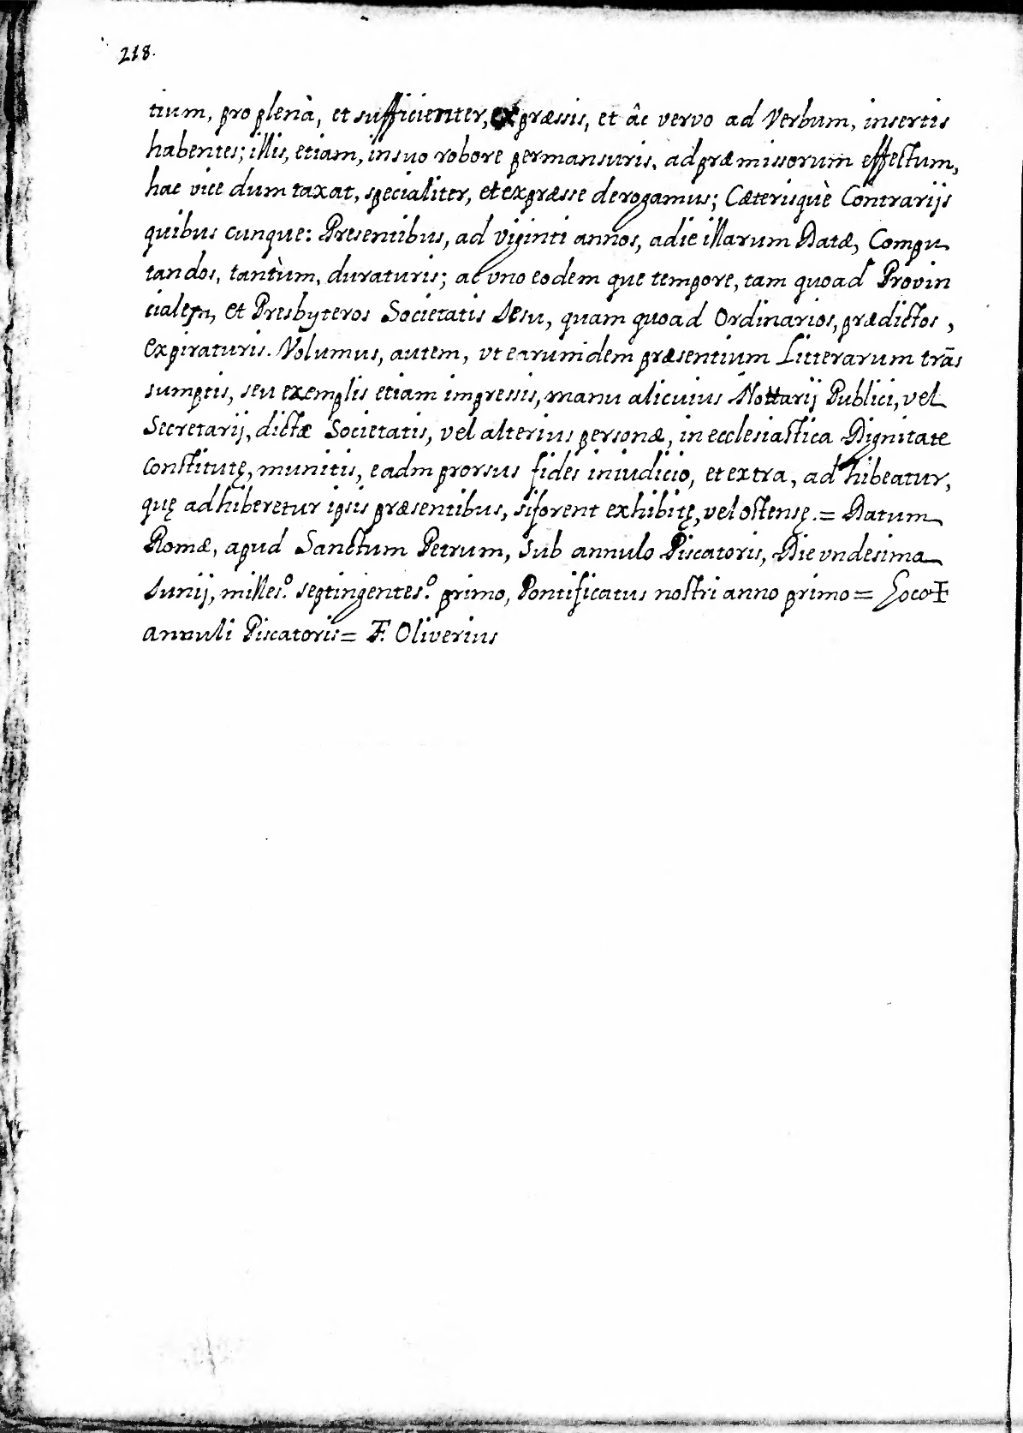 218.
tium, pro plenà, et sufficienter, expræssis, et âc vervo ad Verbum, insertis
habentes; illis, etiam, insuo robore permansuris, ad præmissorum effectum,
hac vice dum taxat, specialiter, et expræsse derogamus; Cæterisquè Contrarijs
quibus cunque: Presentibus, ad viginti annos, adie illarum Datæ, Compu
tandos, tantùm, duraturis; ac vno eodem que tempore, tam quoad Provin
cialem, et Presbyteros Societatis Jesu, quam quoad Ordinarios, prædictos,
Expiraturis. Volumus, autem, vt earumdem præsentium Litterarum trãs
sumptis, seu exemplis etiam impressis, manu alicuius Nottarij Publici, vel
Secretarij, dictæ Societatis, vel alterius personæ, in ecclesiastica Dignitate
constitutę, munitis, eadm prorsus fides iniudicio, et extra, ad hibeatur,
quę adhiberetur ipsis præsentibus, siforent exhibitę, vel ostensę. = Datum
Romæ, apud Sanctum Petrum, Sub annulo Piscatoris, Die vndesima
Junij, milles.º septingentes.º primo, Pontificatus nostri anno primo = Loco ☩
annuli Piscatoris = F. Oliverius